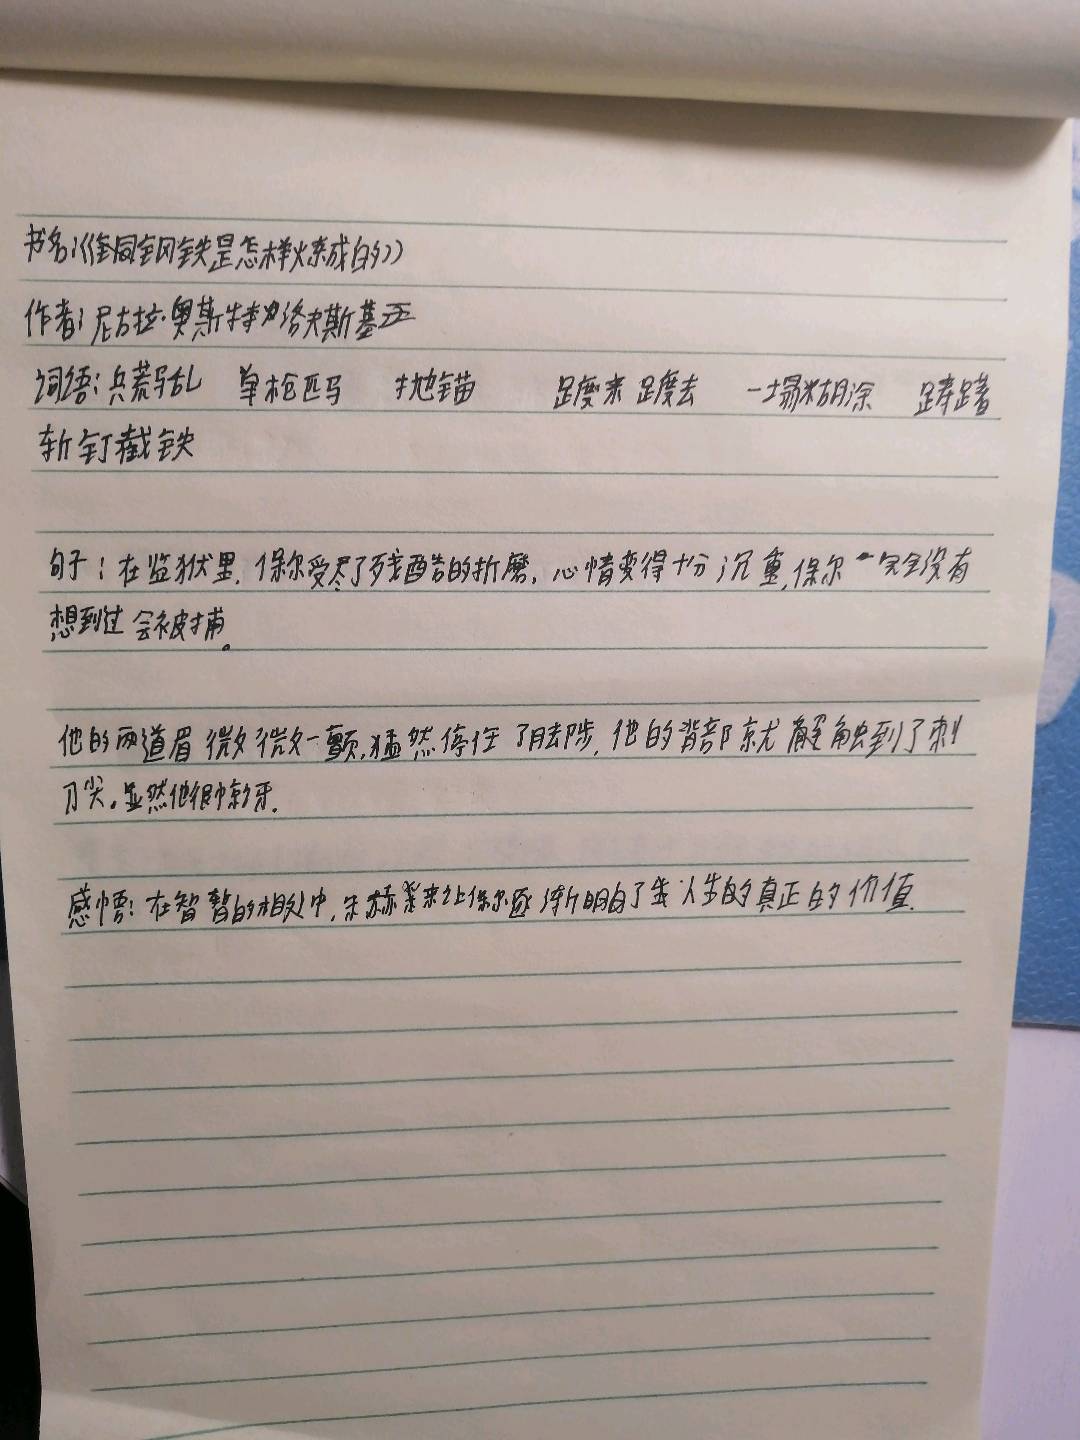 书名:《钢铁是怎样炼成的》
作者:尼古拉·奥斯特洛夫斯基
词语:兵荒马乱 单枪匹马 抛锚 踱来踱去 一塌糊涂 踌躇
斩钉截铁
句子:在监狱里,保尔受尽了残酷的折磨,心情变得十分沉重,保尔完全没有
想到过会被捕。
他的两道眉微微一颤,猛然停住了脚步,他的背部就触到了刺
刀尖。显然他很
感悟:在短暂的相处中,朱赫来让保尔逐渐明白了人生的真正的价值.